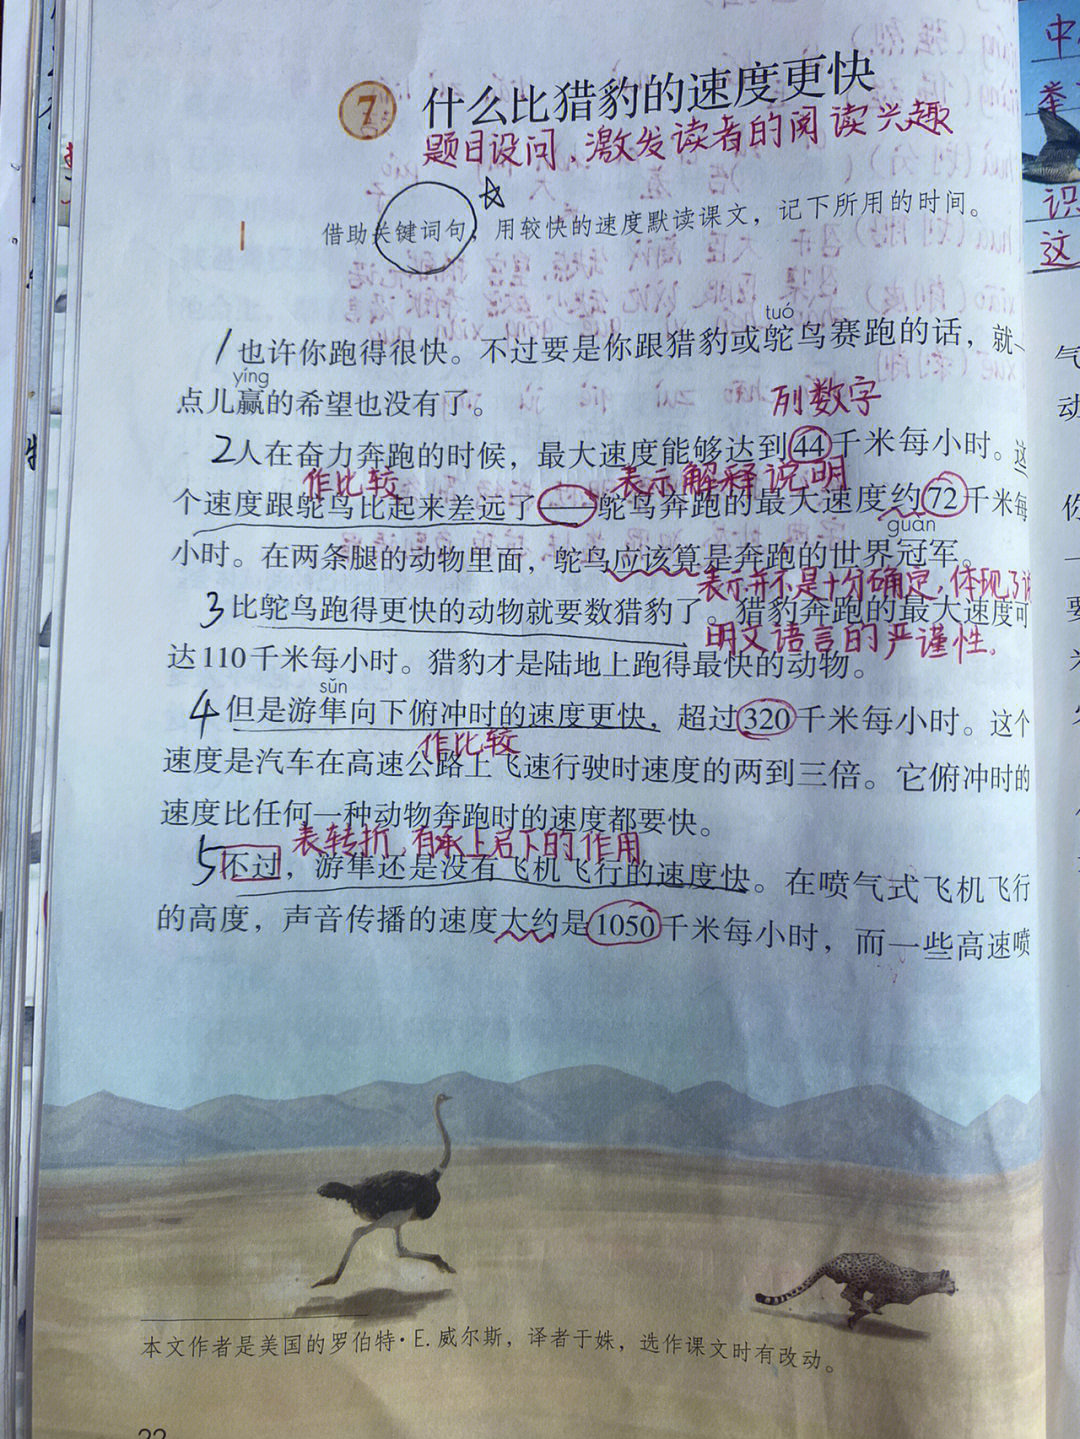 7 什么比猎豹的速度更快
题目设问、激发读者的阅读兴趣
借助关键词句,用较快的速度默读课文,记下所用的时间。
tuó
1也许你跑得很快。不过要是你跟猎豹或鸵鸟赛跑的话,就一
yíng
点儿赢的希望也没有了。
列数字
2人在奋力奔跑的时候,最大速度能够达到44千米每小时。这
作比较 表示解释说明
个速度跟鸵鸟比起来差远了——鸵鸟奔跑的最大速度约72千米每
guàn
小时。在两条腿的动物里面,鸵鸟应该算是奔跑的世界冠军。
表示并不是十分确定,体现了说
3比鸵鸟跑得更快的动物就要数猎豹了。猎豹奔跑的最大速度可
明文语言的严谨性.
达110千米每小时。猎豹才是陆地上跑得最快的动物。
sǔn
4但是游隼向下俯冲时的速度更快,超过320千米每小时。这个
作比较
速度是汽车在高速公路上飞速行驶时速度的两到三倍。它俯冲时的
速度比任何一种动物奔跑时的速度都要快。
表转折,有承上启下的作用
5不过,游隼还是没有飞机飞行的速度快。在喷气式飞机飞行
的高度,声音传播的速度大约是1050千米每小时,而一些高速喷
本文作者是美国的罗伯特·E.威尔斯,译者于姝,选作课文时有改动。
22
中
识
这
气
动
你
一
要